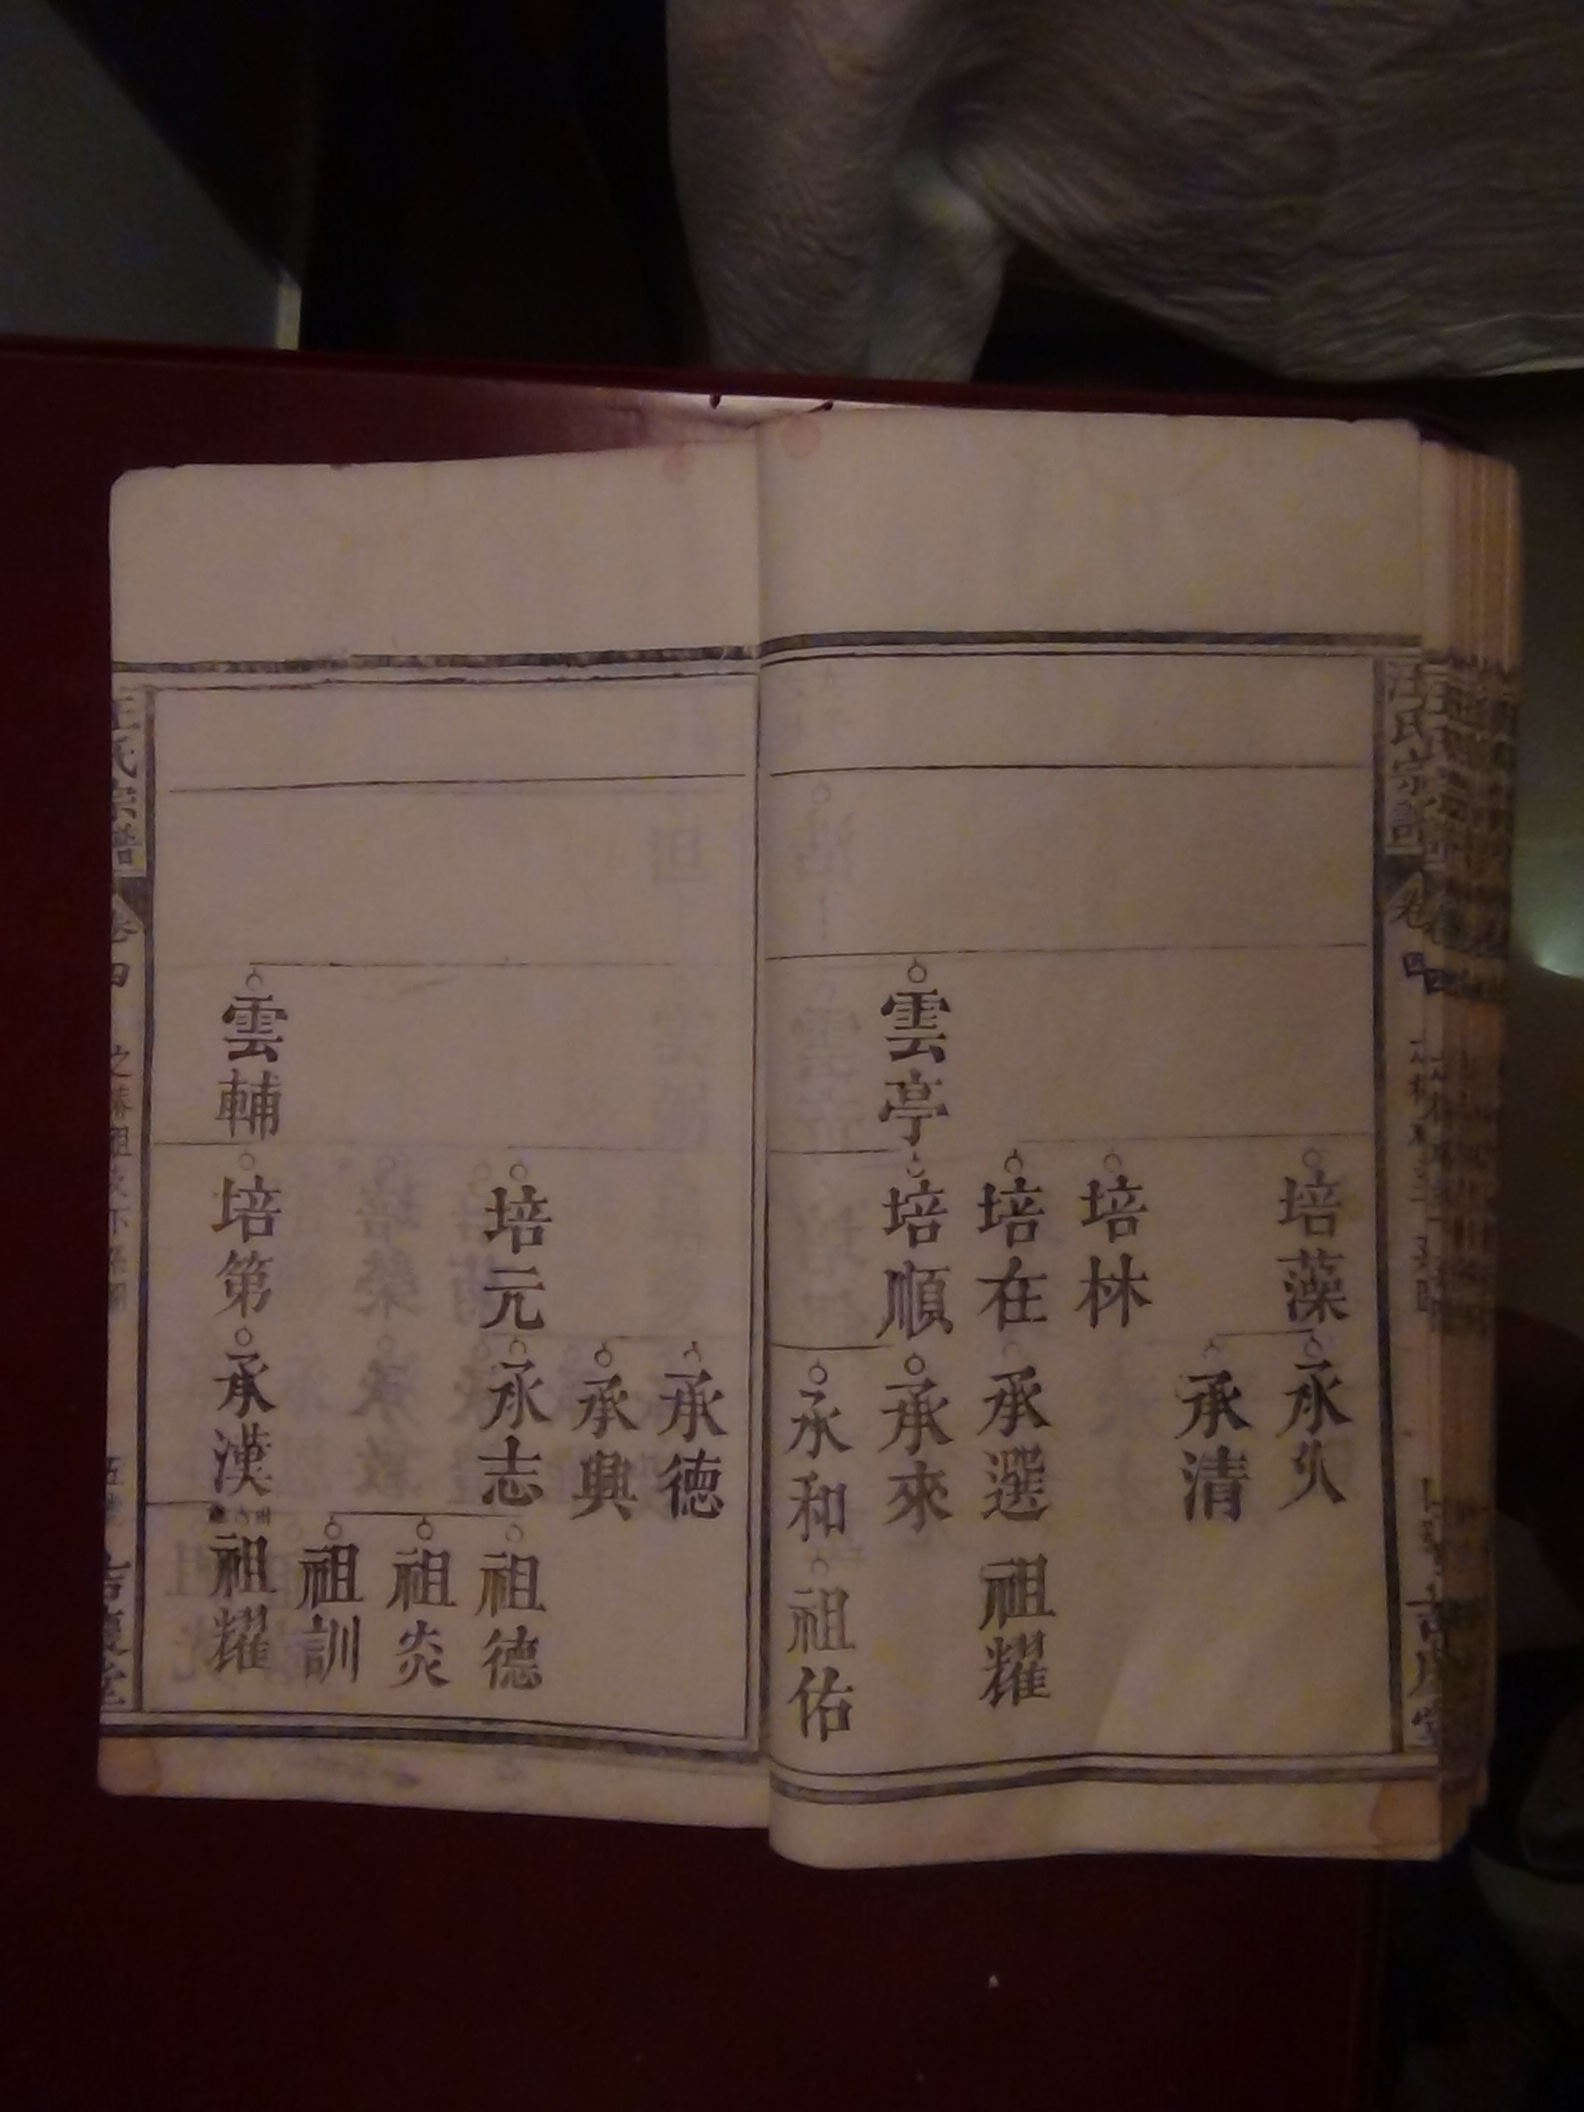 汪氏宗譜
卷四
培藻
承久
承清
培林
培在
承選
祖耀
雲亭
培順
承來
承和
祖佑
承德
承興
培元
承志
祖德
祖炎
祖訓
雲輔
培第
承漢
祖耀
汪氏宗譜
卷四